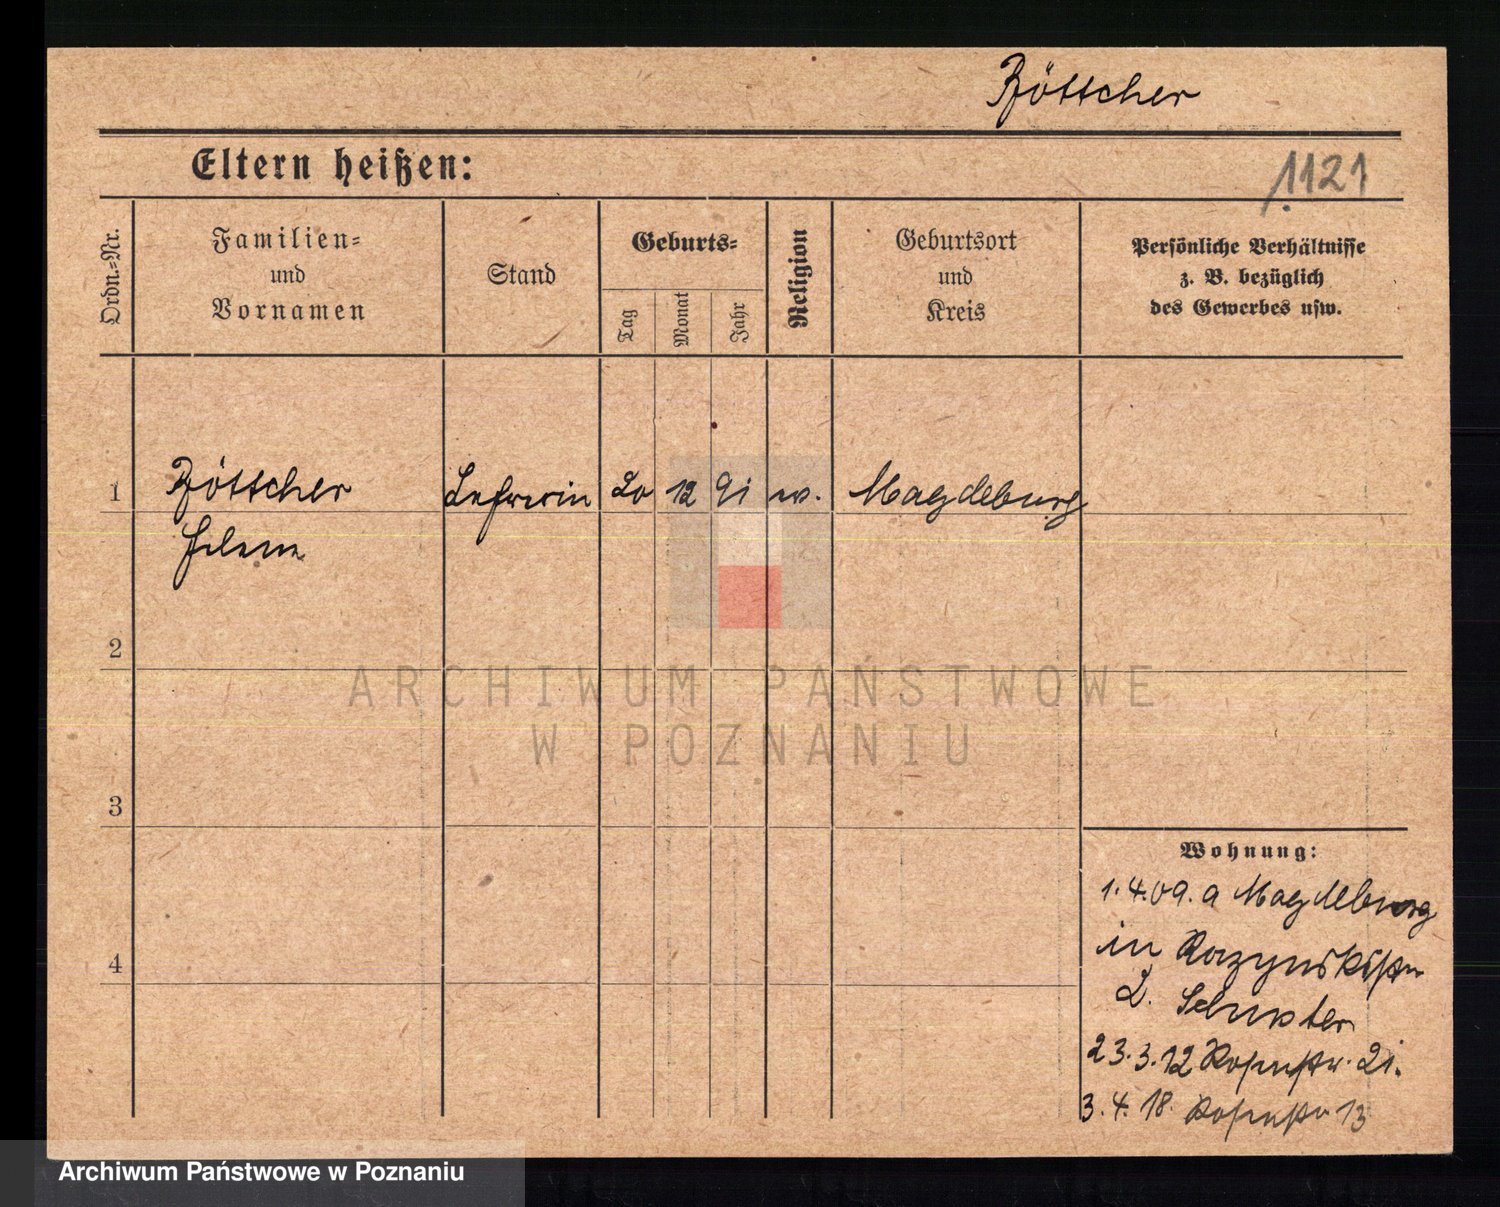 Böttcher
Eltern heißen:
1121
Ordn.-Nr.
Familien-
und
Vornamen
Stand
Geburts-
Tag
Monat
Jahr
Religion
Geburtsort
und
Kreis
Persönliche Verhältnisse
z. B. bezüglich
des Gewerbes usw.
1 Böttcher Lehrerin 20 12 91 ev. Magdeburg
Helene
2
ARCHIWUM PAŃSTWOWE
W POZNANIU
3
Wohnung:
1.4.09. a Magdeburg
4
in
2. Schuster
23.3.12 Rosenstr. 21.
3.4.18. Rosenstr 13
Archiwum Państwowe w Poznaniu